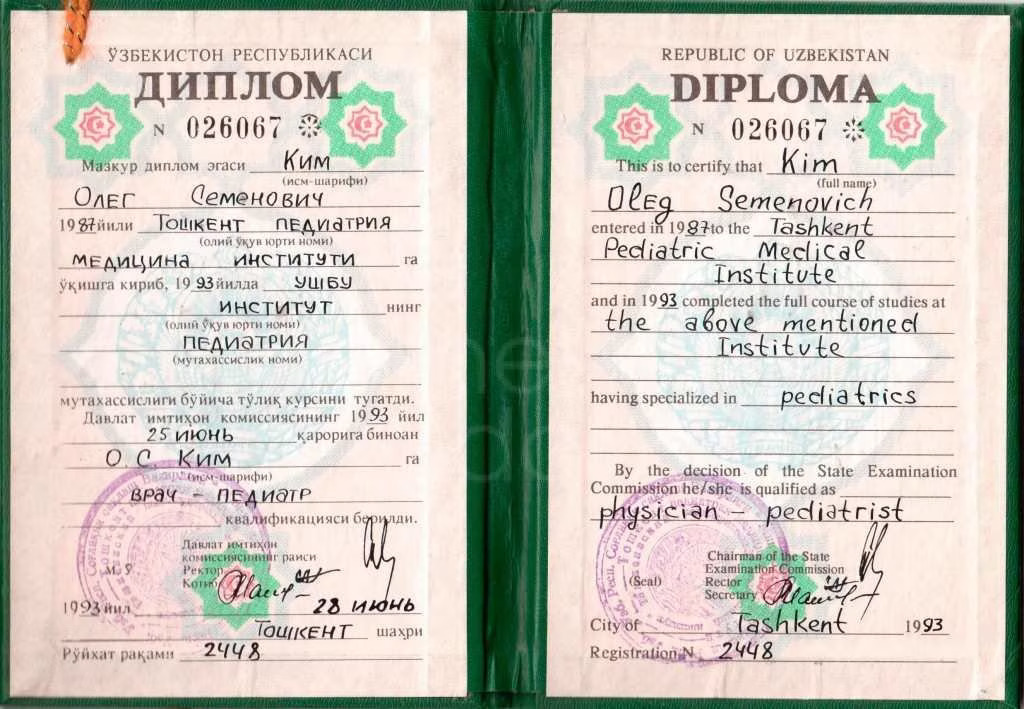 ЎЗБЕКИСТОН РЕСПУБЛИКАСИ
ДИПЛОМ
N 026067
Мазкур диплом эгаси Ким
(исм-шарифи)
Олег Семенович
1987йили Тошкент педиатрия
(олий ўқув юрти номи)
медицина институти га
ўқишга кириб, 1993йилда ушбу
институт нинг
(олий ўқув юрти номи)
педиатрия
(мутахассислик номи)
мутахассислиги бўйича тўлиқ курсини тугатди.
Давлат имтиҳон комиссиясининг 1993 йил
25 июнь қарорига биноан
О.С Ким га
(исм-шарифи)
врач - педиатр
квалификацияси берилди.
Давлат имтиҳон
комиссиясининг раиси
М. Ў Ректор
Котиб
1993 йил 28 июнь
Тошкент шаҳри
Рўйхат рақами 2448
REPUBLIC OF UZBEKISTAN
DIPLOMA
N 026067
This is to certify that Kim
(full name)
Oleg Semenovich
entered in 1987to the Tashkent
Pediatric Medical
Institute
and in 1993 completed the full course of studies at
the above mentioned
Institute
having specialized in pediatrics
By the decision of the State Examination
Commission he/she is qualified as
physician - pediatrist
Chairman of the State
Examination Commission
(Seal) Rector
Secretary
City of Tashkent 1993
Registration N 2448